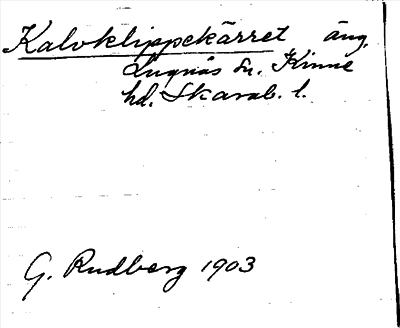 Kalvklippekärret äng,
Lugnås sn. Kinne
hd. Skarab. l.
G. Rudberg 1903